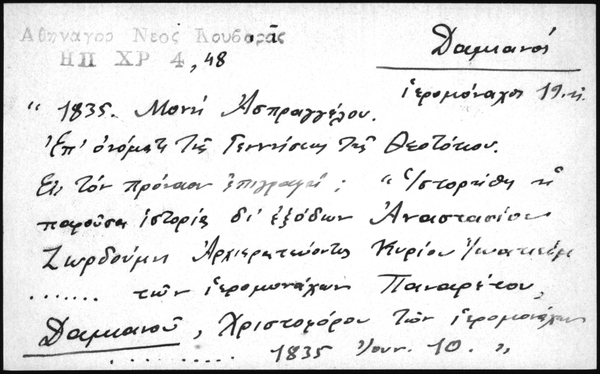 Ἀθηναγορ Νεος Κουβαρᾶς
ΗΠ ΧΡ 4, 48
Δαμιανός
ἱερομόναχος 19. αἰ.
" 1835. Μονή Ἀσπραγγέλου.
Ἐπ' ὀνόματι τῆς Γεννήσεως τῆς Θεοτόκου.
Εἰς τόν πρόναον ἐπιγραφή ; " Ἱστορήθη ἡ
παροῦσα ἱστορία δι' ἐξόδων Ἀναστασίου
Ζωρδούμη Ἀρχιερατεύοντος Κυρίου Ἰωακείμ
....... τῶν ἱερομονάχων Παναρέτου,
Δαμιανοῦ, Χριστοφόρου τῶν ἱερομονάχων
.......... 1835 Ἰουν. 10. "